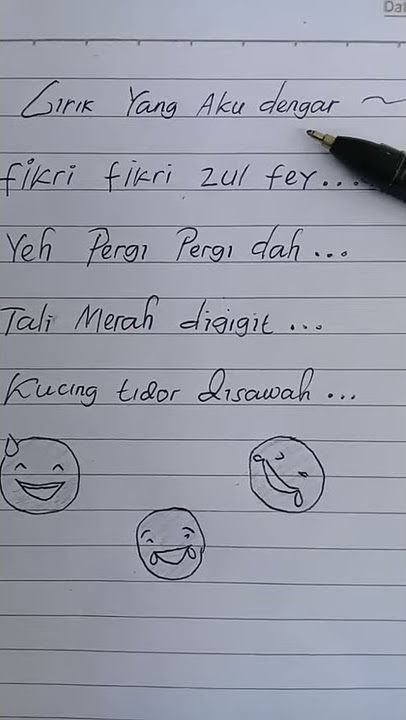 Lirik Yang Aku dengar ~
fikri fikri zul fey...
Yeh Pergi Pergi dah ...
Tali Merah digigit ...
Kucing tidor disawah ...